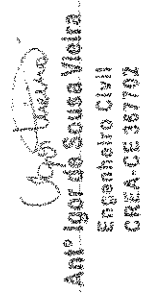 Antº Igor de Sousa Vieira
Engenheiro Civil
CREA-CE 337702